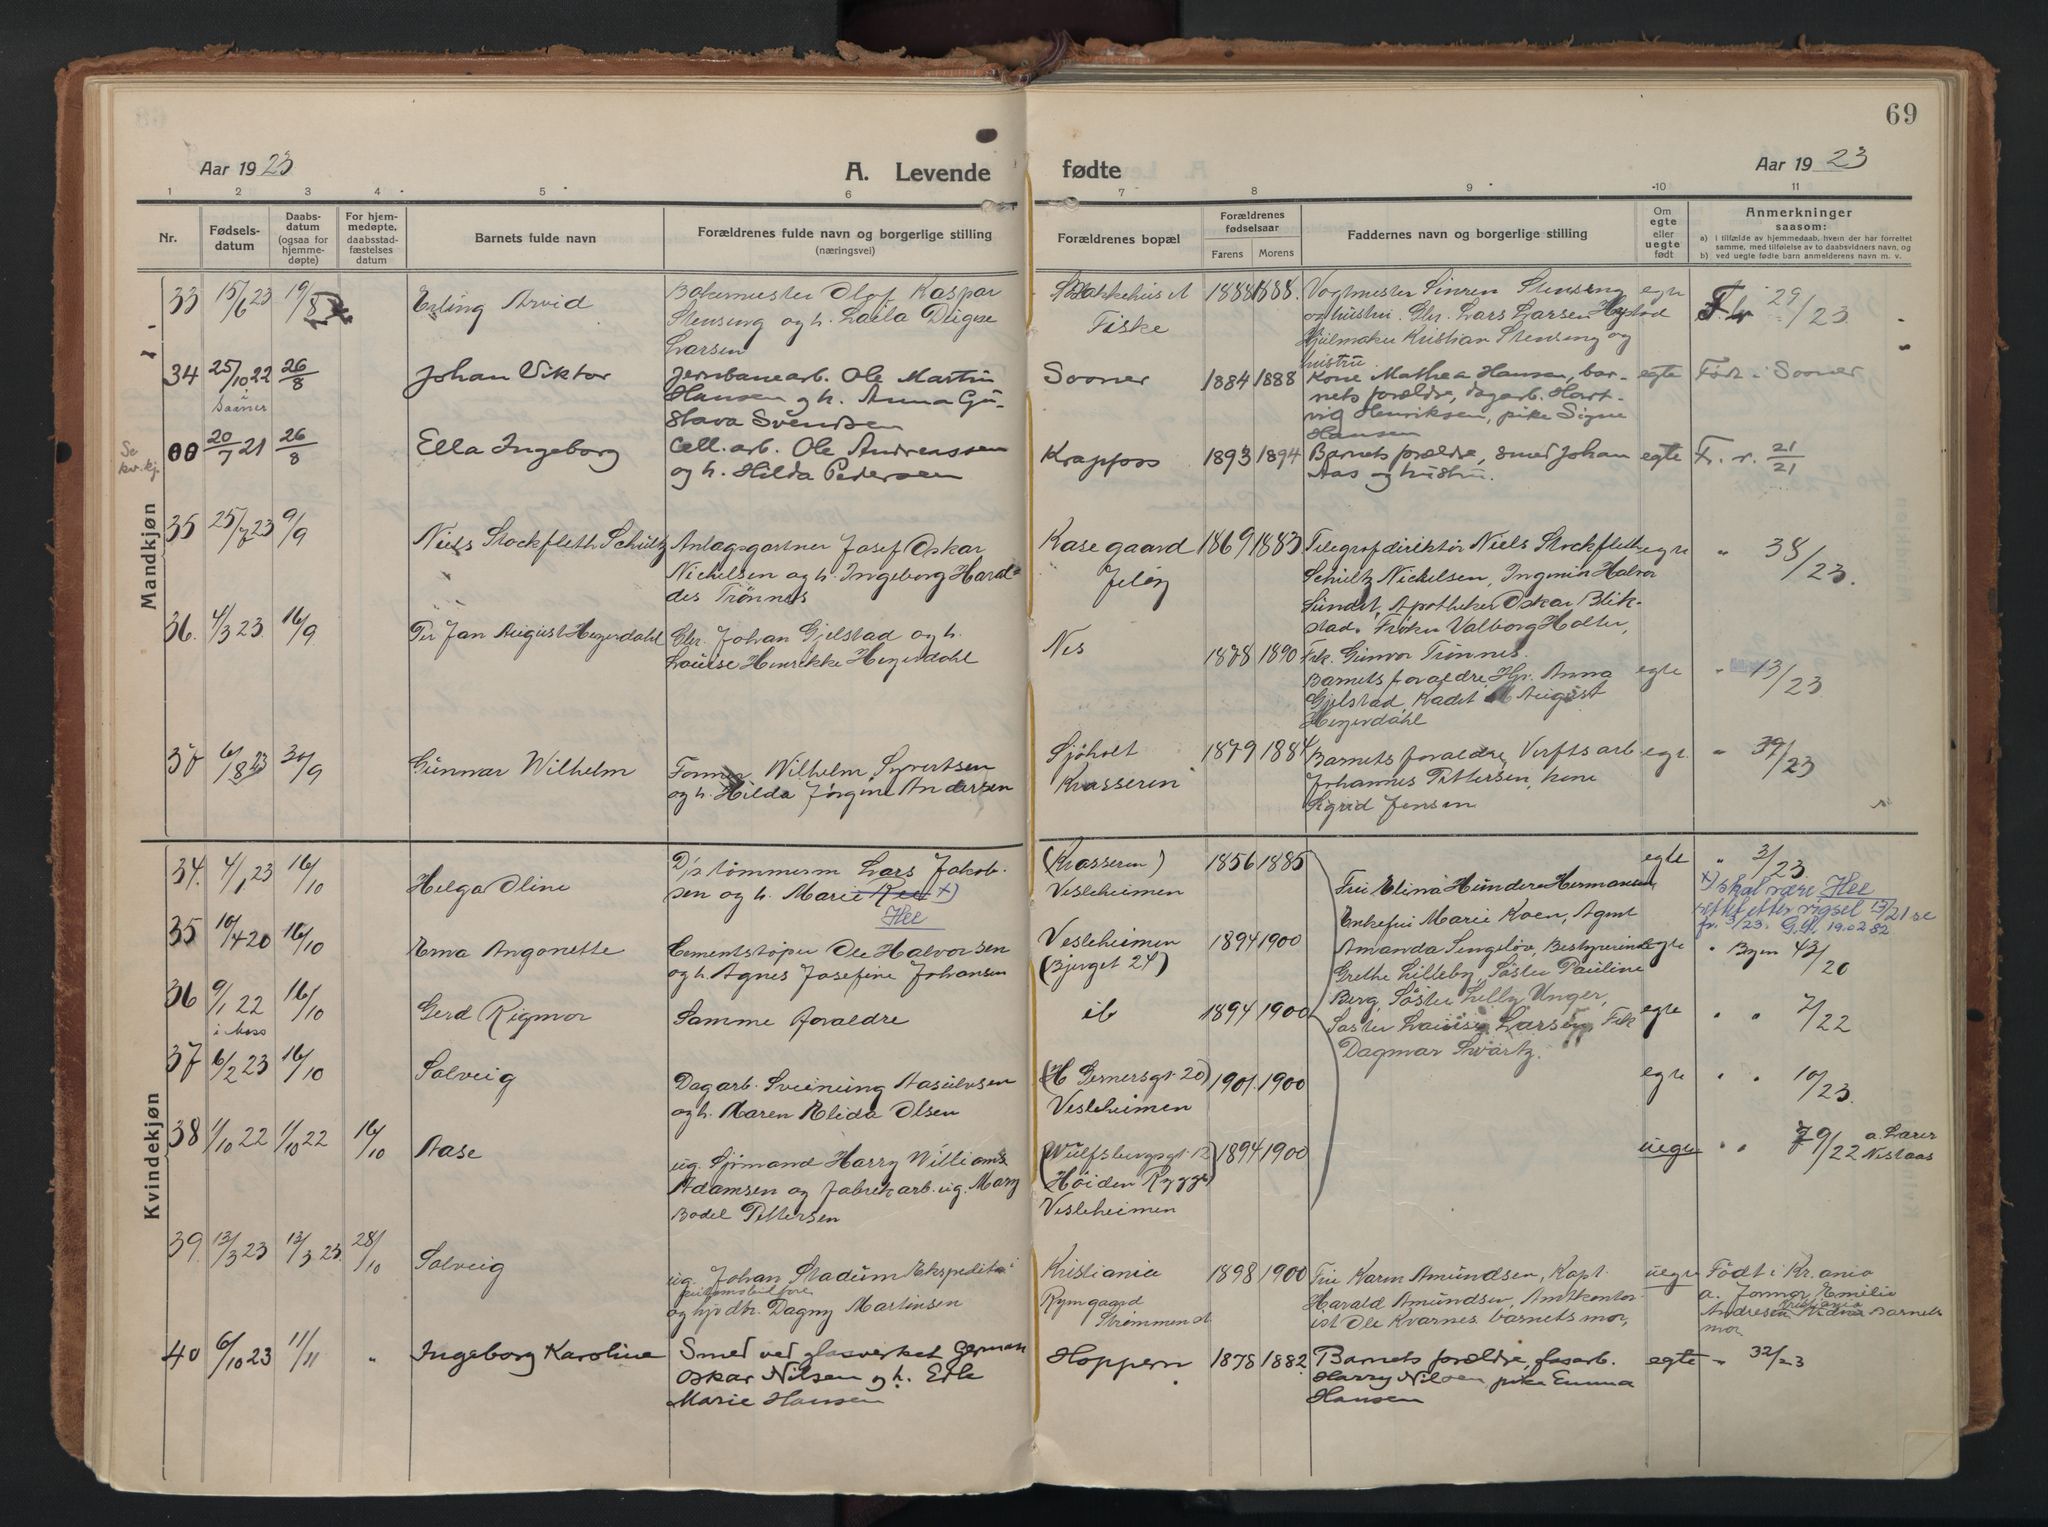 69
Aar 1923
A. Levende
fødte
Aar 1923
1 2 3 4 5 6 7 8 9 10 11
Nr.
Fødsels-
datum
Daabs-
datum
(ogsaa for
hjemme-
døpte)
For hjem-
medøpte,
daabsstad-
fæstelses
datum
Barnets fulde navn
Forældrenes fulde navn og borgerlige stilling
(næringsvei)
Forældrenes bopæl
Forældrenes
fødselsaar
Farens Morens
Faddernes navn og borgerlige stilling
Om
egte
eller
uegte
født
Anmerkninger
saasom:
a) I tilfælde av hjemmedaab, hvem der har forrettet
samme, med tilføielse av to daabsvidners navn, og
b) ved uegte fødte barn anmelderens navn m. v.
Mandkjøn
33 15/6 23 19/8 Erling Arvid
Olof Kaspar
Stensung og h. Laila
Larsen
Fiske
1888 1888
Stensung egte
og hustru. Lars Larsen
Kristian Stensung og
hustru
29/23
34 25/10 22 26/8 Johan Viktor
i Saaner
Jernbanearb. Ole Martin
Hansen og h. Anna Gu-
stava Svendsen
Sooner
1884 1888
Kone Mathea Hansen, bar-
nets forældre, dagarb. Hart-
vig Henriksen, pike Signe
Hansen
egte
Født i Sooner
Se
kv.kj.
00 20/7 21 26/8 Ella Ingeborg
Cell. arb. Ole Andreassen
og h. Hilda Pedersen
Krapfoss
1893 1894
Barnets forældre, smed Johan
Aas og hustru.
egte
Fr. v. 21/21
35 25/7 23 9/9 Niels Stockfleth Schultz
Anlagsgartner Josef Oskar
Nickelsen og h. Ingeborg Haral-
des Trønnes
Kasegaard
Jeløy
1869 1883
Telegrafdirektør Niels Stockfleth
Schultz Nickelsen, Halvor
Sundet, Apotheker Oskar Blik-
stad. Frøken Valborg Holter,
Frk. Gunvor Trønnes.
egte
" 38/23.
36. 4/3 23 16/9 Per Jan August Heyerdahl
Johan Gjelstad og h.
Louise Henrikke Heyerdahl
Nes
1878 1890
Barnets forældre, Anna
Gjelstad, Kadet August
Heyerdahl
egte
" 13/23
37 6/8 23 30/9 Gunnar Wilhelm
Former Wilhelm Syvertsen
og h. Hilda Jørgine Andersen
Sjøholt
Krasseren
1879 1884
Barnets forældre, Verftsarb
Johannes Pettersen, kone
Sigrid Jensen
egte
" 39/23
Kvindekjøn
34. 4/1 23 16/10 Helga Oline
D/s tømmerm Lars Jakob-
sen og h. Marie x)
Hee
(Krasseren)
Vesleheimen
1856 1885
egte
" 3/23.
x) skal være Hee
rettet etter vigsel 13/21 se
fr. 3/23. G.H. 19.02.82
Fru Elina Hundere Hermansen
Enkefru Marie Koen, Agent
Amanda Sengeløv, Bestyrerinde
Grethe Lilleby, Søster Pauline
Berg, Søster Lilly Unger,
Søster Louise Larsen, Frk
Dagmar Swartz.
35 10/4 20 16/10 Erna Angonette
Cementstøper Ole Halvorsen
og h. Agnes Josefine Johansen
Vesleheimen
(Bjerget 24)
1894 1900
egte
" Byen 43/20
36 9/1 22 16/10 Gerd Rigmor
i Moss
Samme forældre
ib
1894 1900
egte
" " 7/22
37 6/2 23 16/10 Solveig
Dagarb. Sveinung Aasulvsen
og h. Maren Elida Olsen
(H Gernersgt. 20)
Vesleheimen
1901. 1900
egte
" " 10/23.
38 1/10 22 1/10 22 16/10 Aase
ug. Sjømand Harry William
Adamsen og fabrikarb. ug. Mary
Bodel Pettersen
(Wulfsbergsgt. 12)
Høiden Rygge)
Vesleheimen
1894 1900
uegte
" " 79/22 a. Larer
Nestaas
39. 13/3 23 13/3 23. 28/10 Solveig
ug. Johan Stadum Ekspeditør i
og hjvdtr. Dagny Martinsen
Kristiania
Rymgaard
Strømmen st
1898 1900
Fru Karen Amundsen, Kapt.
Harald Amundsen, Amtkontor-
ist Ole Kvarnes, barnets mor,
uegte
Født i Kr.ania
a. Jormor Emilie
Andresen Barnets
mor
40 6/10 23 11/11 " Ingeborg Karoline
Smed ved glasverket German
Oskar Nilsen og h. Erle
Marie Hansen
Hoppern
1878 1882
Barnets forældre, glasarb.
Harry Nilsen, pike Emma
Hansen
egte
" 32/23